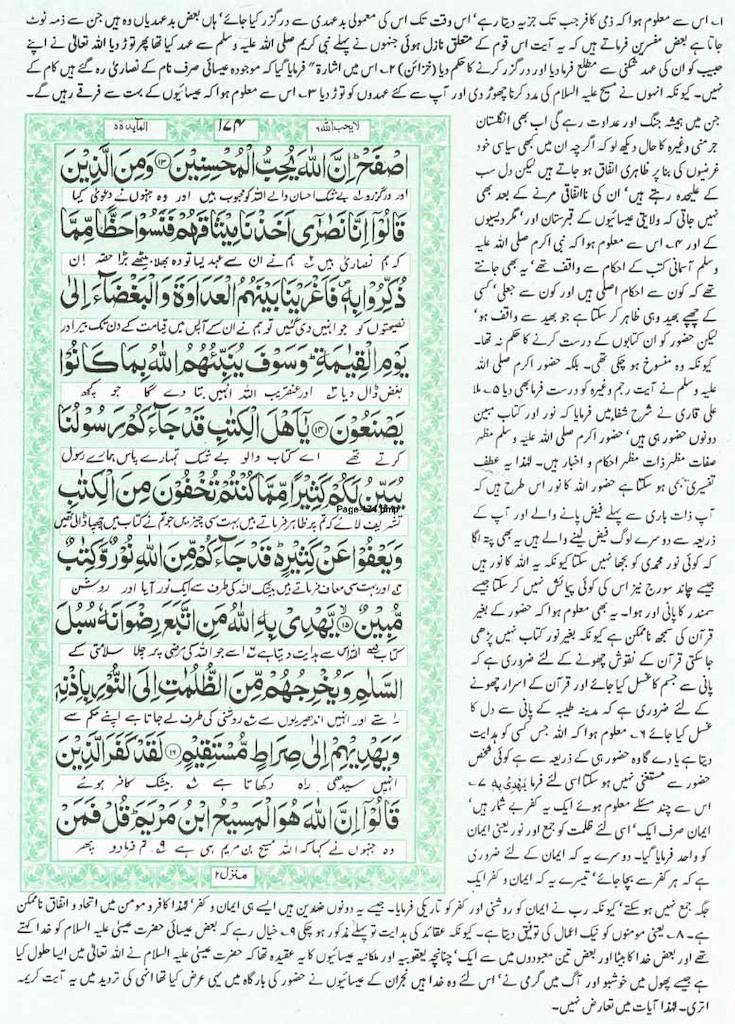 ۱؂ اس سے معلوم ہوا کہ ذمی کافر جب تک جزیہ دیتا رہے' اس وقت تک اس کی معمولی بدعہدی سے درگزر کیا جائے' ہاں بعض بدعہدیاں وہ ہیں جن سے ذمہ ٹوٹ
جاتا ہے بعض مفسرین فرماتے ہیں کہ یہ آیت اس قوم کے متعلق نازل ہوئی جنہوں نے پہلے نبی کریم صلی اللہ علیہ وسلم سے عہد کیا تھا پھر توڑ دیا اللہ تعالیٰ نے اپنے
حبیب کو ان کی عہد شکنی سے مطلع فرما دیا اور درگزر کرنے کا حکم دیا (خزائن) ۲؂ اس میں اشارۃ" فرمایا گیا کہ موجودہ عیسائی صرف نام کے نصاریٰ رہ گئے ہیں کام کے
نہیں۔ کیونکہ انہوں نے مسیح علیہ السلام کی مدد کرنا چھوڑ دی اور آپ سے کئے عہدوں کو توڑ دیا ۳؂ اس سے معلوم ہوا کہ عیسائیوں کے بہت سے فرقے رہیں گے۔
لا یحب اللہ ۶
۱۷۴
المآئدۃ ۵
اصْفَحْ ؕ اِنَّ اللّٰهَ یُحِبُّ الْمُحْسِنِیْنَ ﴿۱۳﴾ وَمِنَ الَّذِیْنَ
اور درگزرو بے شک احسان والے اللہ کو محبوب ہیں اور وہ جنہوں نے دعویٰ کیا
قَالُوْۤا اِنَّا نَصٰرٰۤی اَخَذْنَا مِیْثَاقَهُمْ فَنَسُوْا حَظًّا مِّمَّا
کہ ہم نصاریٰ ہیں ہم نے ان سے عہد لیا تو وہ بھلا بیٹھے بڑا حصہ ان
ذُكِّرُوْا بِهٖ ۪ فَاَغْرَیْنَا بَیْنَهُمُ الْعَدَاوَةَ وَ الْبَغْضَآءَ اِلٰی
نصیحتوں کو جو انہیں دی گئیں تو ہم نے ان کے آپس میں قیامت کے دن تک بیر اور
یَوْمِ الْقِیٰمَةِ ؕ وَسَوْفَ یُنَبِّئُهُمُ اللّٰهُ بِمَا كَانُوْا
بغض ڈال دیا اور عنقریب اللہ انہیں بتا دے گا جو کچھ
یَصْنَعُوْنَ ﴿۱۴﴾ یٰۤاَهْلَ الْكِتٰبِ قَدْ جَآءَكُمْ رَسُوْلُنَا
کرتے تھے اے کتاب والو بے شک تمہارے پاس ہمارے رسول
یُبَیِّنُ لَكُمْ كَثِیْرًا مِّمَّا كُنْتُمْ تُخْفُوْنَ مِنَ الْكِتٰبِ
Page-174.bmp
تشریف لائے کہ تم پر ظاہر فرماتے ہیں بہت سی چیزیں جو تم نے کتاب میں چھپا ڈالی تھیں
وَیَعْفُوْا عَنْ كَثِیْرٍ ؕ قَدْ جَآءَكُمْ مِّنَ اللّٰهِ نُوْرٌ وَّكِتٰبٌ
اور بہت سی معاف فرماتے ہیں بیشک اللہ کی طرف سے ایک نور آیا اور روشن
مُّبِیْنٌ ﴿۱۵﴾ یَّهْدِیْ بِهِ اللّٰهُ مَنِ اتَّبَعَ رِضْوَانَهٗ سُبُلَ
کتاب اللہ اس سے ہدایت دیتا ہے اسے جو اللہ کی مرضی پر چلا سلامتی کے
السَّلٰمِ وَیُخْرِجُهُمْ مِّنَ الظُّلُمٰتِ اِلَی النُّوْرِ بِاِذْنِهٖ
راستے اور انہیں اندھیریوں سے روشنی کی طرف لے جاتا ہے اپنے حکم سے
وَیَهْدِیْهِمْ اِلٰی صِرَاطٍ مُّسْتَقِیْمٍ ﴿۱۶﴾ لَقَدْ كَفَرَ الَّذِیْنَ
انہیں سیدھی راہ دکھاتا ہے بیشک کافر ہوئے
قَالُوْۤا اِنَّ اللّٰهَ هُوَ الْمَسِیْحُ ابْنُ مَرْیَمَ ؕ قُلْ فَمَنْ
وہ جنہوں نے کہا کہ اللہ مسیح بن مریم ہی ہے تم فرما دو پھر
منزل ۲
جن میں ہمیشہ جنگ اور عداوت رہے گی اب بھی انگلستان
جرمنی وغیرہ کا حال دیکھ لو کہ اگرچہ ان میں بھی سیاسی خود
غرضیوں کی بنا پر ظاہری اتفاق ہو جاتے ہیں لیکن دل سب
کے علیحدہ رہتے ہیں' ان کی نااتفاقی مرنے کے بعد بھی
نہیں جاتی کہ ولایتی عیسائیوں کے قبرستان اور' مگر دیسیوں
کے اور ۴؂ اس سے معلوم ہوا کہ نبی اکرم صلی اللہ علیہ
وسلم آسمانی کتب کے احکام سے واقف تھے' یہ بھی جانتے
تھے کہ کون سے احکام اصلی ہیں اور کون سے جعلی' کسی
کے چھپے بھید وہی ظاہر کر سکتا ہے جو بھید سے واقف ہو'
لیکن حضور کو ان کتابوں کے درست کرنے کا حکم نہ تھا۔
کیونکہ وہ منسوخ ہو چکی تھی۔ بلکہ حضور اکرم صلی اللہ
علیہ وسلم نے آیت رجم وغیرہ کو درست فرما بھی دیا ۵؂ ملا
علی قاری نے شرح شفا میں فرمایا کہ نور اور کتاب مبین
دونوں حضور ہی ہیں' حضور اکرم صلی اللہ علیہ وسلم مظہر
صفات مظہر ذات مظہر احکام و اخبار ہیں۔ لہٰذا یہ عطف
تفسیری بھی ہو سکتا ہے حضور اللہ کا نور اس طرح ہیں کہ
آپ ذات باری سے پہلے فیض پانے والے اور آپ کے
ذریعہ سے دوسرے لوگ فیض لینے والے ہیں یہ بھی پتہ لگا
کہ کوئی نور محمدی کو بجھا نہیں سکتا کیونکہ یہ اللہ کا نور ہیں
جیسے چاند سورج نیز اس کی کوئی پیمائش نہیں کر سکتا جیسے
سمندر کا پانی اور ہوا۔ یہ بھی معلوم ہوا کہ حضور کے بغیر
قرآن کی سمجھ ناممکن ہے کیونکہ بغیر نور کتاب نہیں پڑھی
جا سکتی قرآن کے نقوش چھونے کے لئے ضروری ہے کہ
پانی سے جسم کا غسل کیا جائے اور قرآن کے اسرار چھونے
کے لئے ضروری ہے کہ مدینہ طیبہ کے پانی سے دل کا
غسل کیا جائے ۶؂ معلوم ہوا کہ اللہ جس کسی کو ہدایت
دیتا ہے یا دے گا وہ حضور ہی کے ذریعہ سے ہے کوئی شخص
حضور سے مستغنی نہیں ہو سکتا اسی لئے فرمایا یَهْدِیْ بِهٖ ۷؂
اس سے چند مسئلے معلوم ہوئے ایک یہ کفر بے شمار ہیں'
ایمان صرف ایک' اسی لئے ظلمت کو جمع اور نور یعنی ایمان
کو واحد فرمایا گیا۔ دوسرے یہ کہ ایمان کے لئے ضروری
ہے کہ ہر کفر سے بچا جائے' تیسرے یہ کہ ایمان و کفر ایک
جگہ جمع نہیں ہو سکتے' کیونکہ رب نے ایمان کو روشنی اور کفر کو تاریکی فرمایا۔ جیسے یہ دونوں ضدین ہیں ایسے ہی ایمان و کفر' لہٰذا کافر و مومن میں اتحاد و اتفاق ناممکن
ہے۔ ۸؂ یعنی مومنوں کو نیک اعمال کی توفیق دیتا ہے۔ کیونکہ عقائد کی ہدایت تو پہلے مذکور ہو چکی ۹؂ خیال رہے کہ بعض عیسائی حضرت عیسیٰ علیہ السلام کو خدا کہتے
تھے اور بعض خدا کا بیٹا اور بعض تین معبودوں میں سے ایک' چنانچہ یعقوبیہ اور ملکانیہ عیسائیوں کا یہ عقیدہ تھا کہ حضرت عیسیٰ علیہ السلام نے اللہ تعالیٰ میں ایسا حلول کیا
ہے جیسے پھول میں خوشبو اور آگ میں گرمی نے' اس لئے وہ خدا ہیں نجران کے عیسائیوں نے حضور کی بارگاہ میں یہی عرض کیا تھا انہی کی تردید میں یہ آیت کریمہ
اتری۔ لہٰذا آیات میں تعارض نہیں۔